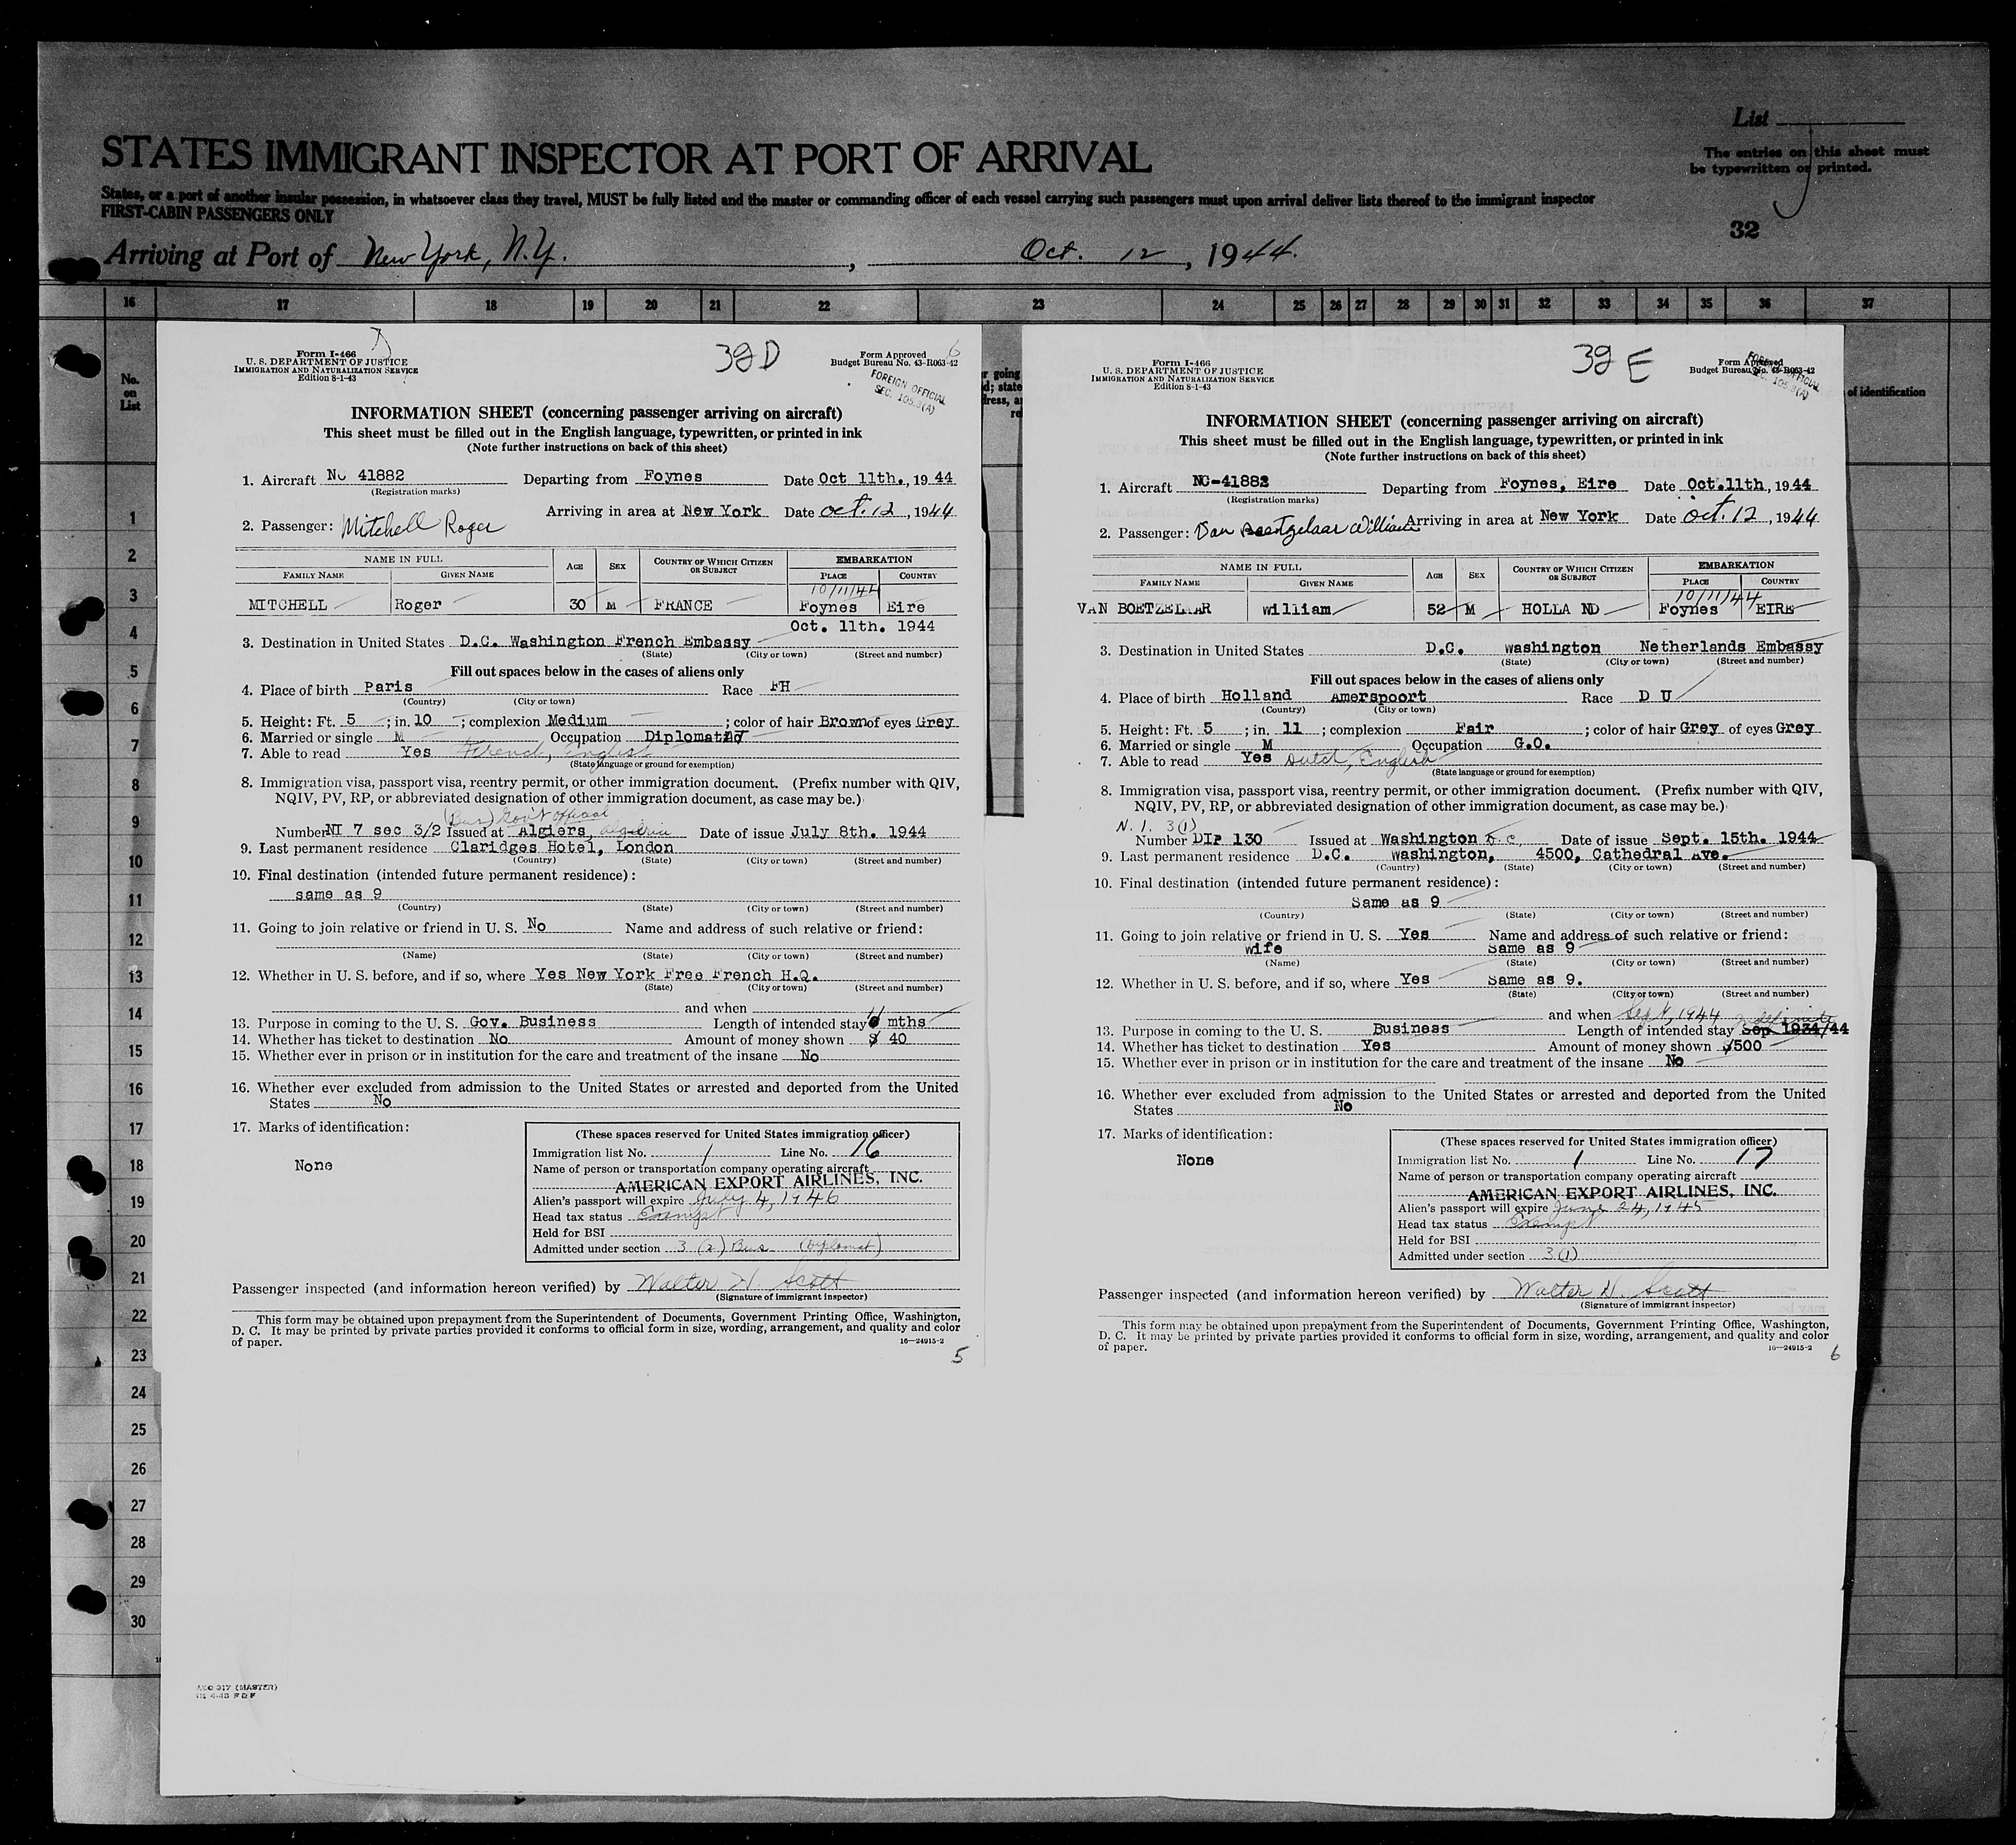 List
STATES IMMIGRANT INSPECTOR AT PORT OF ARRIVAL
The entries on this sheet must
be typewritten or printed.
States, or a part of another insular possession, in whatsoever class they travel, MUST be fully listed and the master or commanding officer of each vessel carrying such passengers must upon arrival deliver lists thereof to the immigrant inspector
FIRST-CABIN PASSENGERS ONLY
32
Arriving at Port of New York, N.Y. , Oct. 12 , 1944.
16 17 18 19 20 21 22 23 24 25 26 27 28 29 30 31 32 33 34 35 36 37
No.
on
List
1
2
3
4
5
6
7
8
9
10
11
12
13
14
15
16
17
18
19
20
21
22
23
24
25
26
27
28
29
30
of identification
Form I-466
U. S. DEPARTMENT OF JUSTICE
IMMIGRATION AND NATURALIZATION SERVICE
Edition 8-1-43
39D
Form Approved
Budget Bureau No. 43-R063-42
6
FOREIGN OFFICIAL
SEC. 105.3(A)
INFORMATION SHEET (concerning passenger arriving on aircraft)
This sheet must be filled out in the English language, typewritten, or printed in ink
(Note further instructions on back of this sheet)
1. Aircraft NC 41882 Departing from Foynes Date Oct 11th., 1944
(Registration marks)
Arriving in area at New York Date Oct. 12, 1944
2. Passenger: Mitchell Roger
NAME IN FULL AGE SEX COUNTRY OF WHICH CITIZEN OR SUBJECT EMBARKATION
FAMILY NAME GIVEN NAME PLACE COUNTRY
10/11/44
MITCHELL Roger 30 M FRANCE Foynes Eire
Oct. 11th. 1944
3. Destination in United States D.C. Washington French Embassy
(State) (City or town) (Street and number)
Fill out spaces below in the cases of aliens only
4. Place of birth Paris Race FH
(Country) (City or town)
5. Height: Ft. 5 ; in. 10 ; complexion Medium ; color of hair Brown of eyes Grey
6. Married or single M Occupation Diplomat
7. Able to read Yes French, English
(State language or ground for exemption)
8. Immigration visa, passport visa, reentry permit, or other immigration document. (Prefix number with QIV,
NQIV, PV, RP, or abbreviated designation of other immigration document, as case may be.)
(Bus) Gov't official
Number NI 7 sec 3/2 Issued at Algiers, Algeria Date of issue July 8th. 1944
9. Last permanent residence Claridges Hotel, London
(Country) (State) (City or town) (Street and number)
10. Final destination (intended future permanent residence):
same as 9
(Country) (State) (City or town) (Street and number)
11. Going to join relative or friend in U. S. No Name and address of such relative or friend:
(Name) (State) (City or town) (Street and number)
12. Whether in U. S. before, and if so, where Yes New York Free French H.Q.
(State) (City or town) (Street and number)
and when
13. Purpose in coming to the U. S. Gov. Business Length of intended stay mths
14. Whether has ticket to destination No Amount of money shown $ 40
15. Whether ever in prison or in institution for the care and treatment of the insane No
16. Whether ever excluded from admission to the United States or arrested and deported from the United
States No
17. Marks of identification:
None
(These spaces reserved for United States immigration officer)
Immigration list No. 1 Line No. 16
Name of person or transportation company operating aircraft
AMERICAN EXPORT AIRLINES, INC.
Alien's passport will expire July 4, 1946
Head tax status Exempt
Held for BSI
Admitted under section 3 (2) Bus (Diplomat)
Passenger inspected (and information hereon verified) by Walter N. Scott
(Signature of immigrant inspector)
This form may be obtained upon prepayment from the Superintendent of Documents, Government Printing Office, Washington,
D. C. It may be printed by private parties provided it conforms to official form in size, wording, arrangement, and quality and color
of paper.
16—24915-2
5
Form I-466
U. S. DEPARTMENT OF JUSTICE
IMMIGRATION AND NATURALIZATION SERVICE
Edition 8-1-43
39E
Form Approved
Budget Bureau No. 43-R063-42
FOREIGN OFFICIAL
SEC. 105.3(A)
INFORMATION SHEET (concerning passenger arriving on aircraft)
This sheet must be filled out in the English language, typewritten, or printed in ink
(Note further instructions on back of this sheet)
1. Aircraft NC-41882 Departing from Foynes, Eire Date Oct.11th, 1944
(Registration marks)
Arriving in area at New York Date Oct. 12, 1944
2. Passenger: Van Boetzelaar William
NAME IN FULL AGE SEX COUNTRY OF WHICH CITIZEN OR SUBJECT EMBARKATION
FAMILY NAME GIVEN NAME PLACE COUNTRY
10/11/44
VAN BOETZELAAR William 52 M HOLLAND Foynes EIRE
3. Destination in United States D.C. Washington Netherlands Embassy
(State) (City or town) (Street and number)
Fill out spaces below in the cases of aliens only
4. Place of birth Holland Amerspoort Race D U
(Country) (City or town)
5. Height: Ft. 5 ; in. 11 ; complexion Fair ; color of hair Grey of eyes Grey
6. Married or single M Occupation G.O.
7. Able to read Yes Dutch, English
(State language or ground for exemption)
8. Immigration visa, passport visa, reentry permit, or other immigration document. (Prefix number with QIV,
NQIV, PV, RP, or abbreviated designation of other immigration document, as case may be.)
N. I. 3(1)
Number DIP 130 Issued at Washington D.C. Date of issue Sept. 15th. 1944
9. Last permanent residence D.C. Washington, 4500, Cathedral Ave.
(Country) (State) (City or town) (Street and number)
10. Final destination (intended future permanent residence):
Same as 9
(Country) (State) (City or town) (Street and number)
11. Going to join relative or friend in U. S. Yes Name and address of such relative or friend:
wife Same as 9
(Name) (State) (City or town) (Street and number)
12. Whether in U. S. before, and if so, where Yes Same as 9.
(State) (City or town) (Street and number)
and when Sept, 1944
indefinite
13. Purpose in coming to the U. S. Business Length of intended stay Sep 1934/44
14. Whether has ticket to destination Yes Amount of money shown $500
15. Whether ever in prison or in institution for the care and treatment of the insane No
16. Whether ever excluded from admission to the United States or arrested and deported from the United
States No
17. Marks of identification:
None
(These spaces reserved for United States immigration officer)
Immigration list No. 1 Line No. 17
Name of person or transportation company operating aircraft
AMERICAN EXPORT AIRLINES, INC.
Alien's passport will expire June 24, 1945
Head tax status Exempt
Held for BSI
Admitted under section 3(1)
Passenger inspected (and information hereon verified) by Walter N. Scott
(Signature of immigrant inspector)
This form may be obtained upon prepayment from the Superintendent of Documents, Government Printing Office, Washington,
D. C. It may be printed by private parties provided it conforms to official form in size, wording, arrangement, and quality and color
of paper.
16—24915-2
6